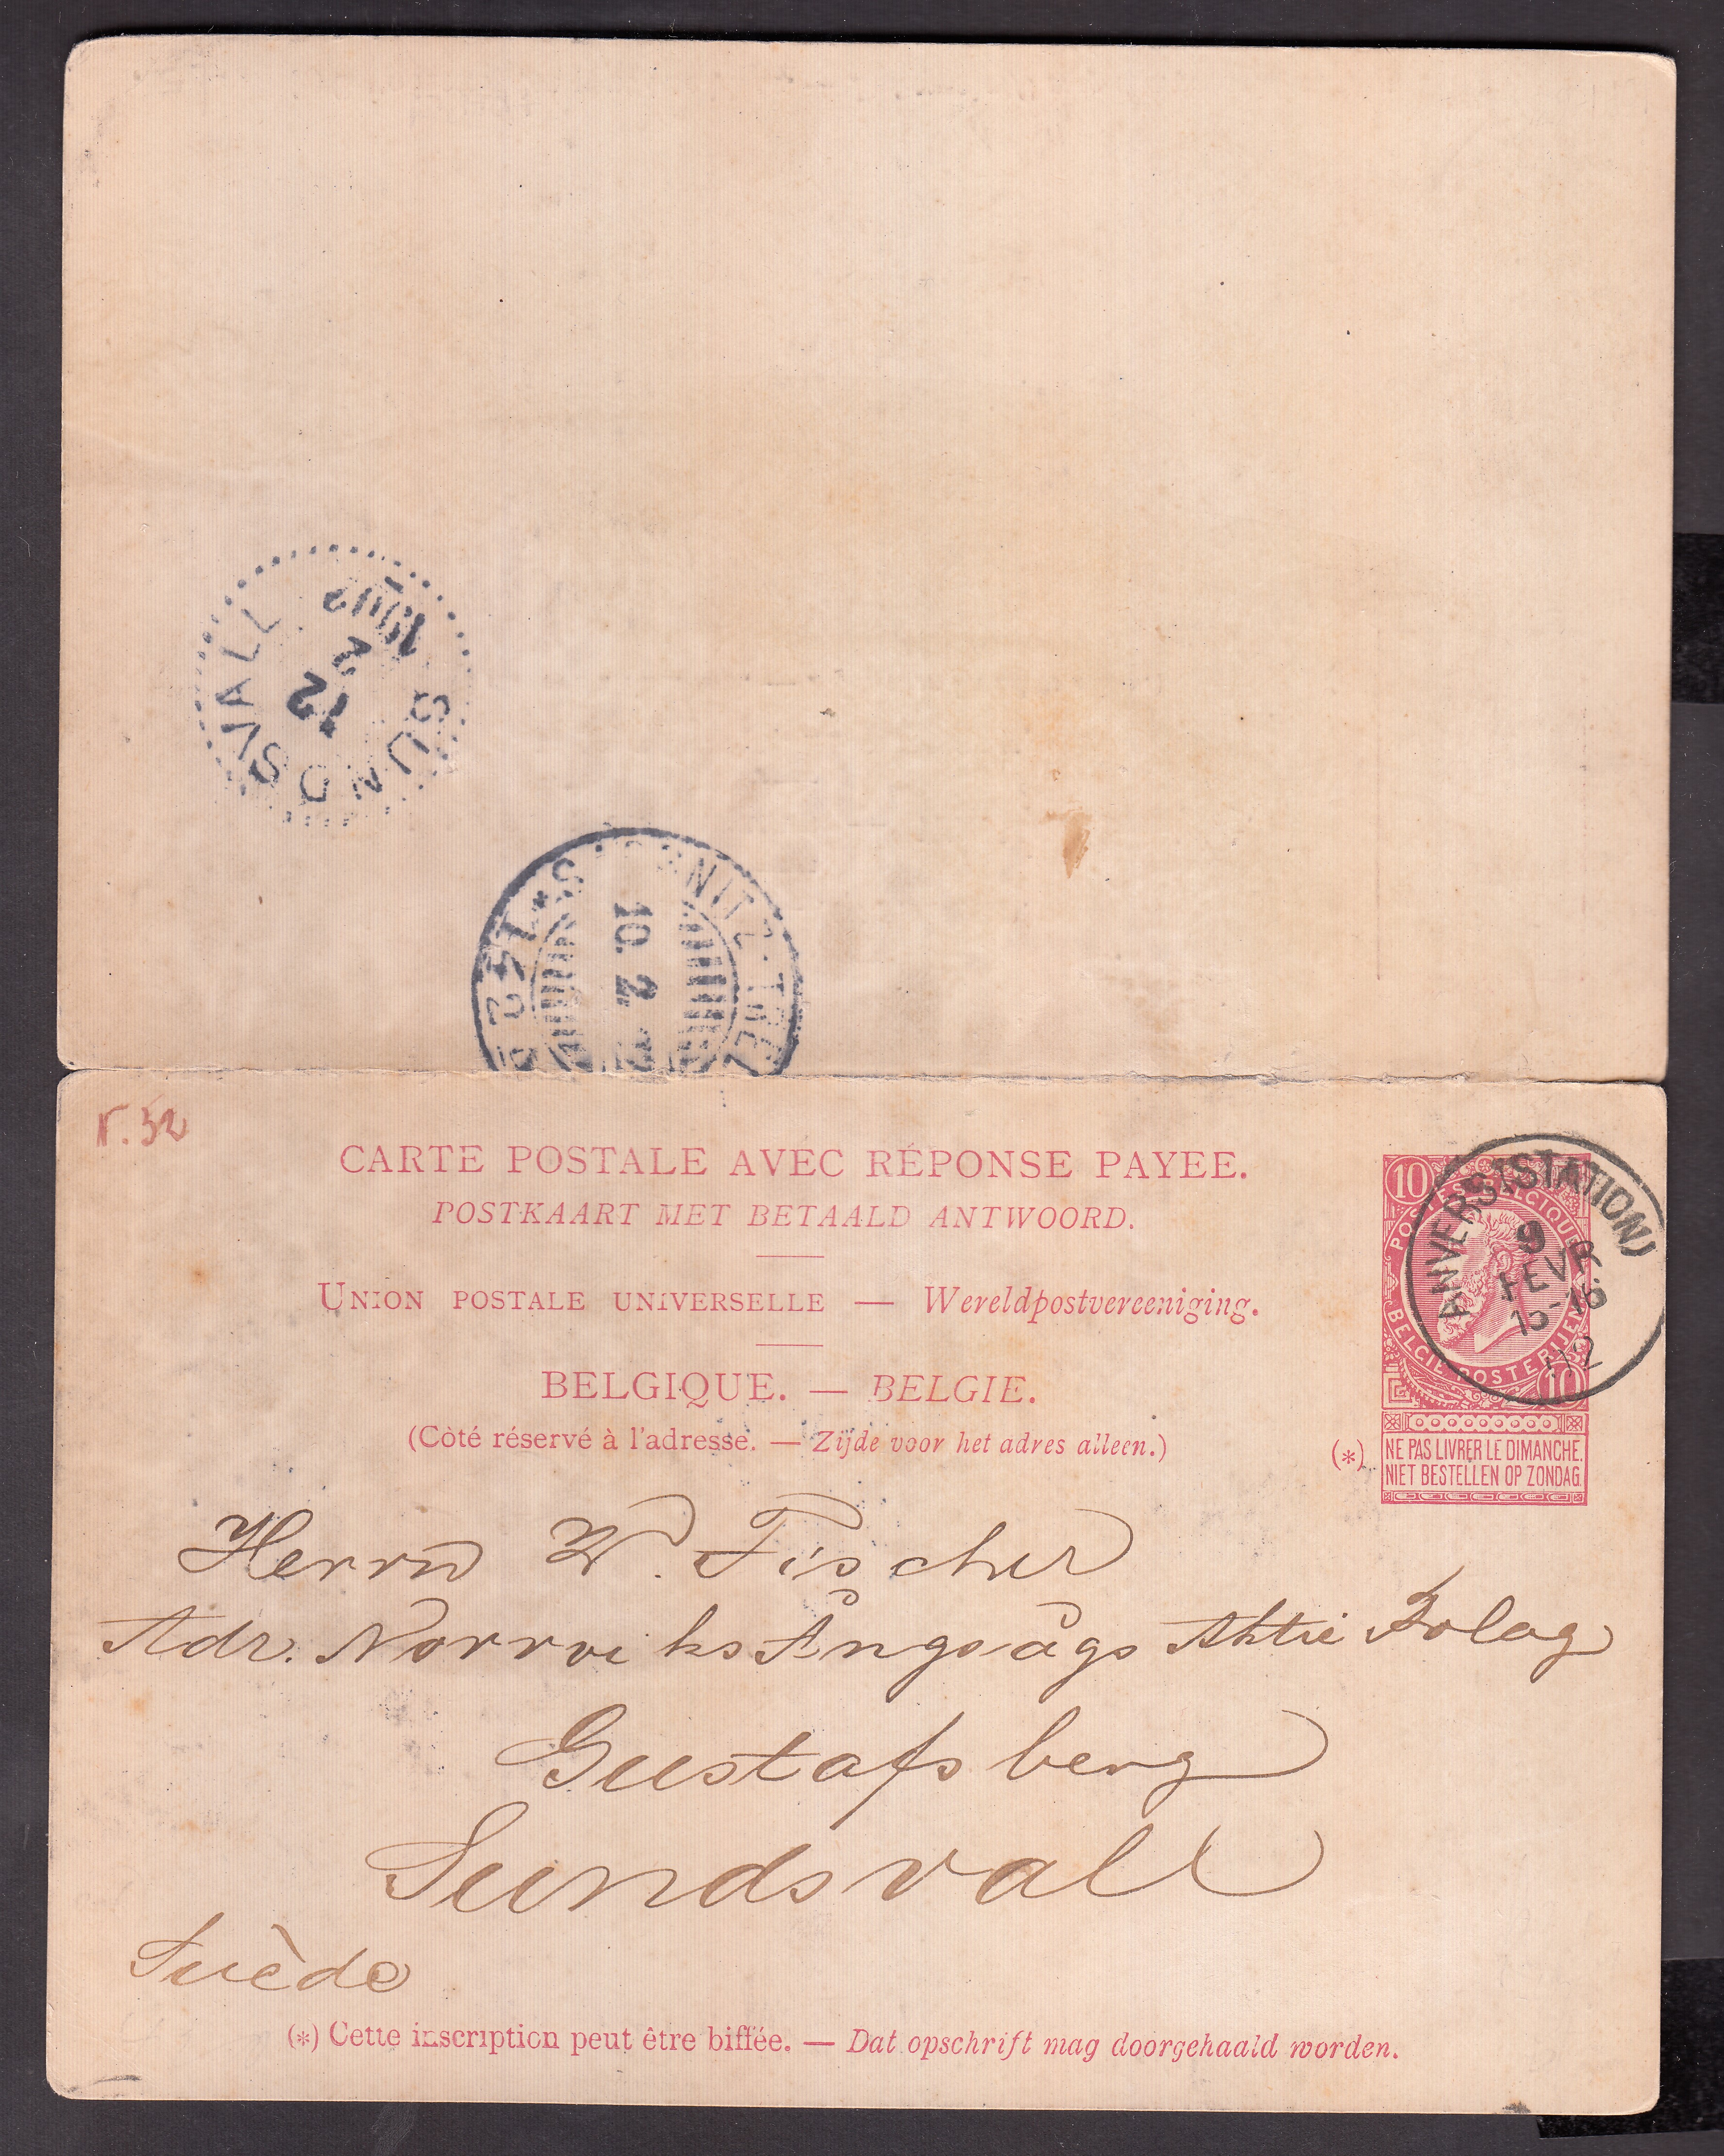 SUNDSVALL
12
2
1902
10. 2.
r. 52
CARTE POSTALE AVEC RÉPONSE PAYEE.
POSTKAART MET BETAALD ANTWOORD.
UNION POSTALE UNIVERSELLE — Wereldpostvereeniging.
BELGIQUE. — BELGIE.
(Côté réservé à l'adresse. — Zijde voor het adres alleen.)
10
POSTES BELGIQUE
BELGIE POSTERIJEN
10
ANVERS (STATION)
9
FEVR
15-16
02
(*) NE PAS LIVRER LE DIMANCHE.
NIET BESTELLEN OP ZONDAG.
Herrn W. Fischer
Adr. Norrviks Ångsågs Aktie Bolag
Gustafsberg
Sundsvall
Suède
(*) Cette inscription peut être biffée. — Dat opschrift mag doorgehaald worden.